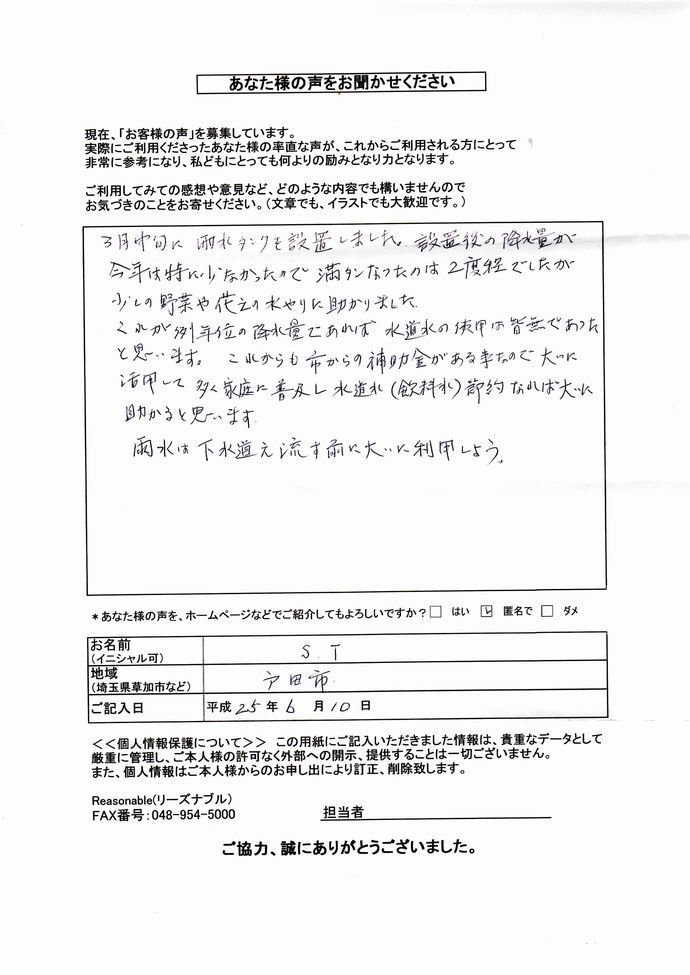 あなた様の声をお聞かせください
現在、「お客様の声」を募集しています。
実際にご利用くださったあなた様の率直な声が、これからご利用される方にとって
非常に参考になり、私どもにとっても何よりの励みとなり力となります。
ご利用してみての感想や意見など、どのような内容でも構いませんので
お気づきのことをお寄せください。(文章でも、イラストでも大歓迎です。)
3月中旬に 雨水タンクを設置しました。設置後の降水量が
今年は特に少なかったので 満タンなったのは 2度程でしたが
少しの野菜や花えの水やりに助かりました
これが例年位の降水量であれば 水道水の使用は皆無であった
と思います。 これからも市からの補助金がある事なので大いに
活用して 多く家庭に普及し 水道水(飲料水)節約なれば大いに
助かると思います
雨水は下水道え流す前に大いに利用しよう。
*あなた様の声を、ホームページなどでご紹介してもよろしいですか?□ はい ☑ 匿名で □ ダメ
お名前 S.T
(イニシャル可)
地域 戸田市
(埼玉県草加市など)
ご記入日 平成 25 年 6 月 10 日
<<個人情報保護について>> この用紙にご記入いただきました情報は、貴重なデータとして
厳重に管理し、ご本人様の許可なく外部への開示、提供することは一切ございません。
また、個人情報はご本人様からのお申し出により訂正、削除致します。
Reasonable(リーズナブル)
FAX番号:048-954-5000 担当者
ご協力、誠にありがとうございました。